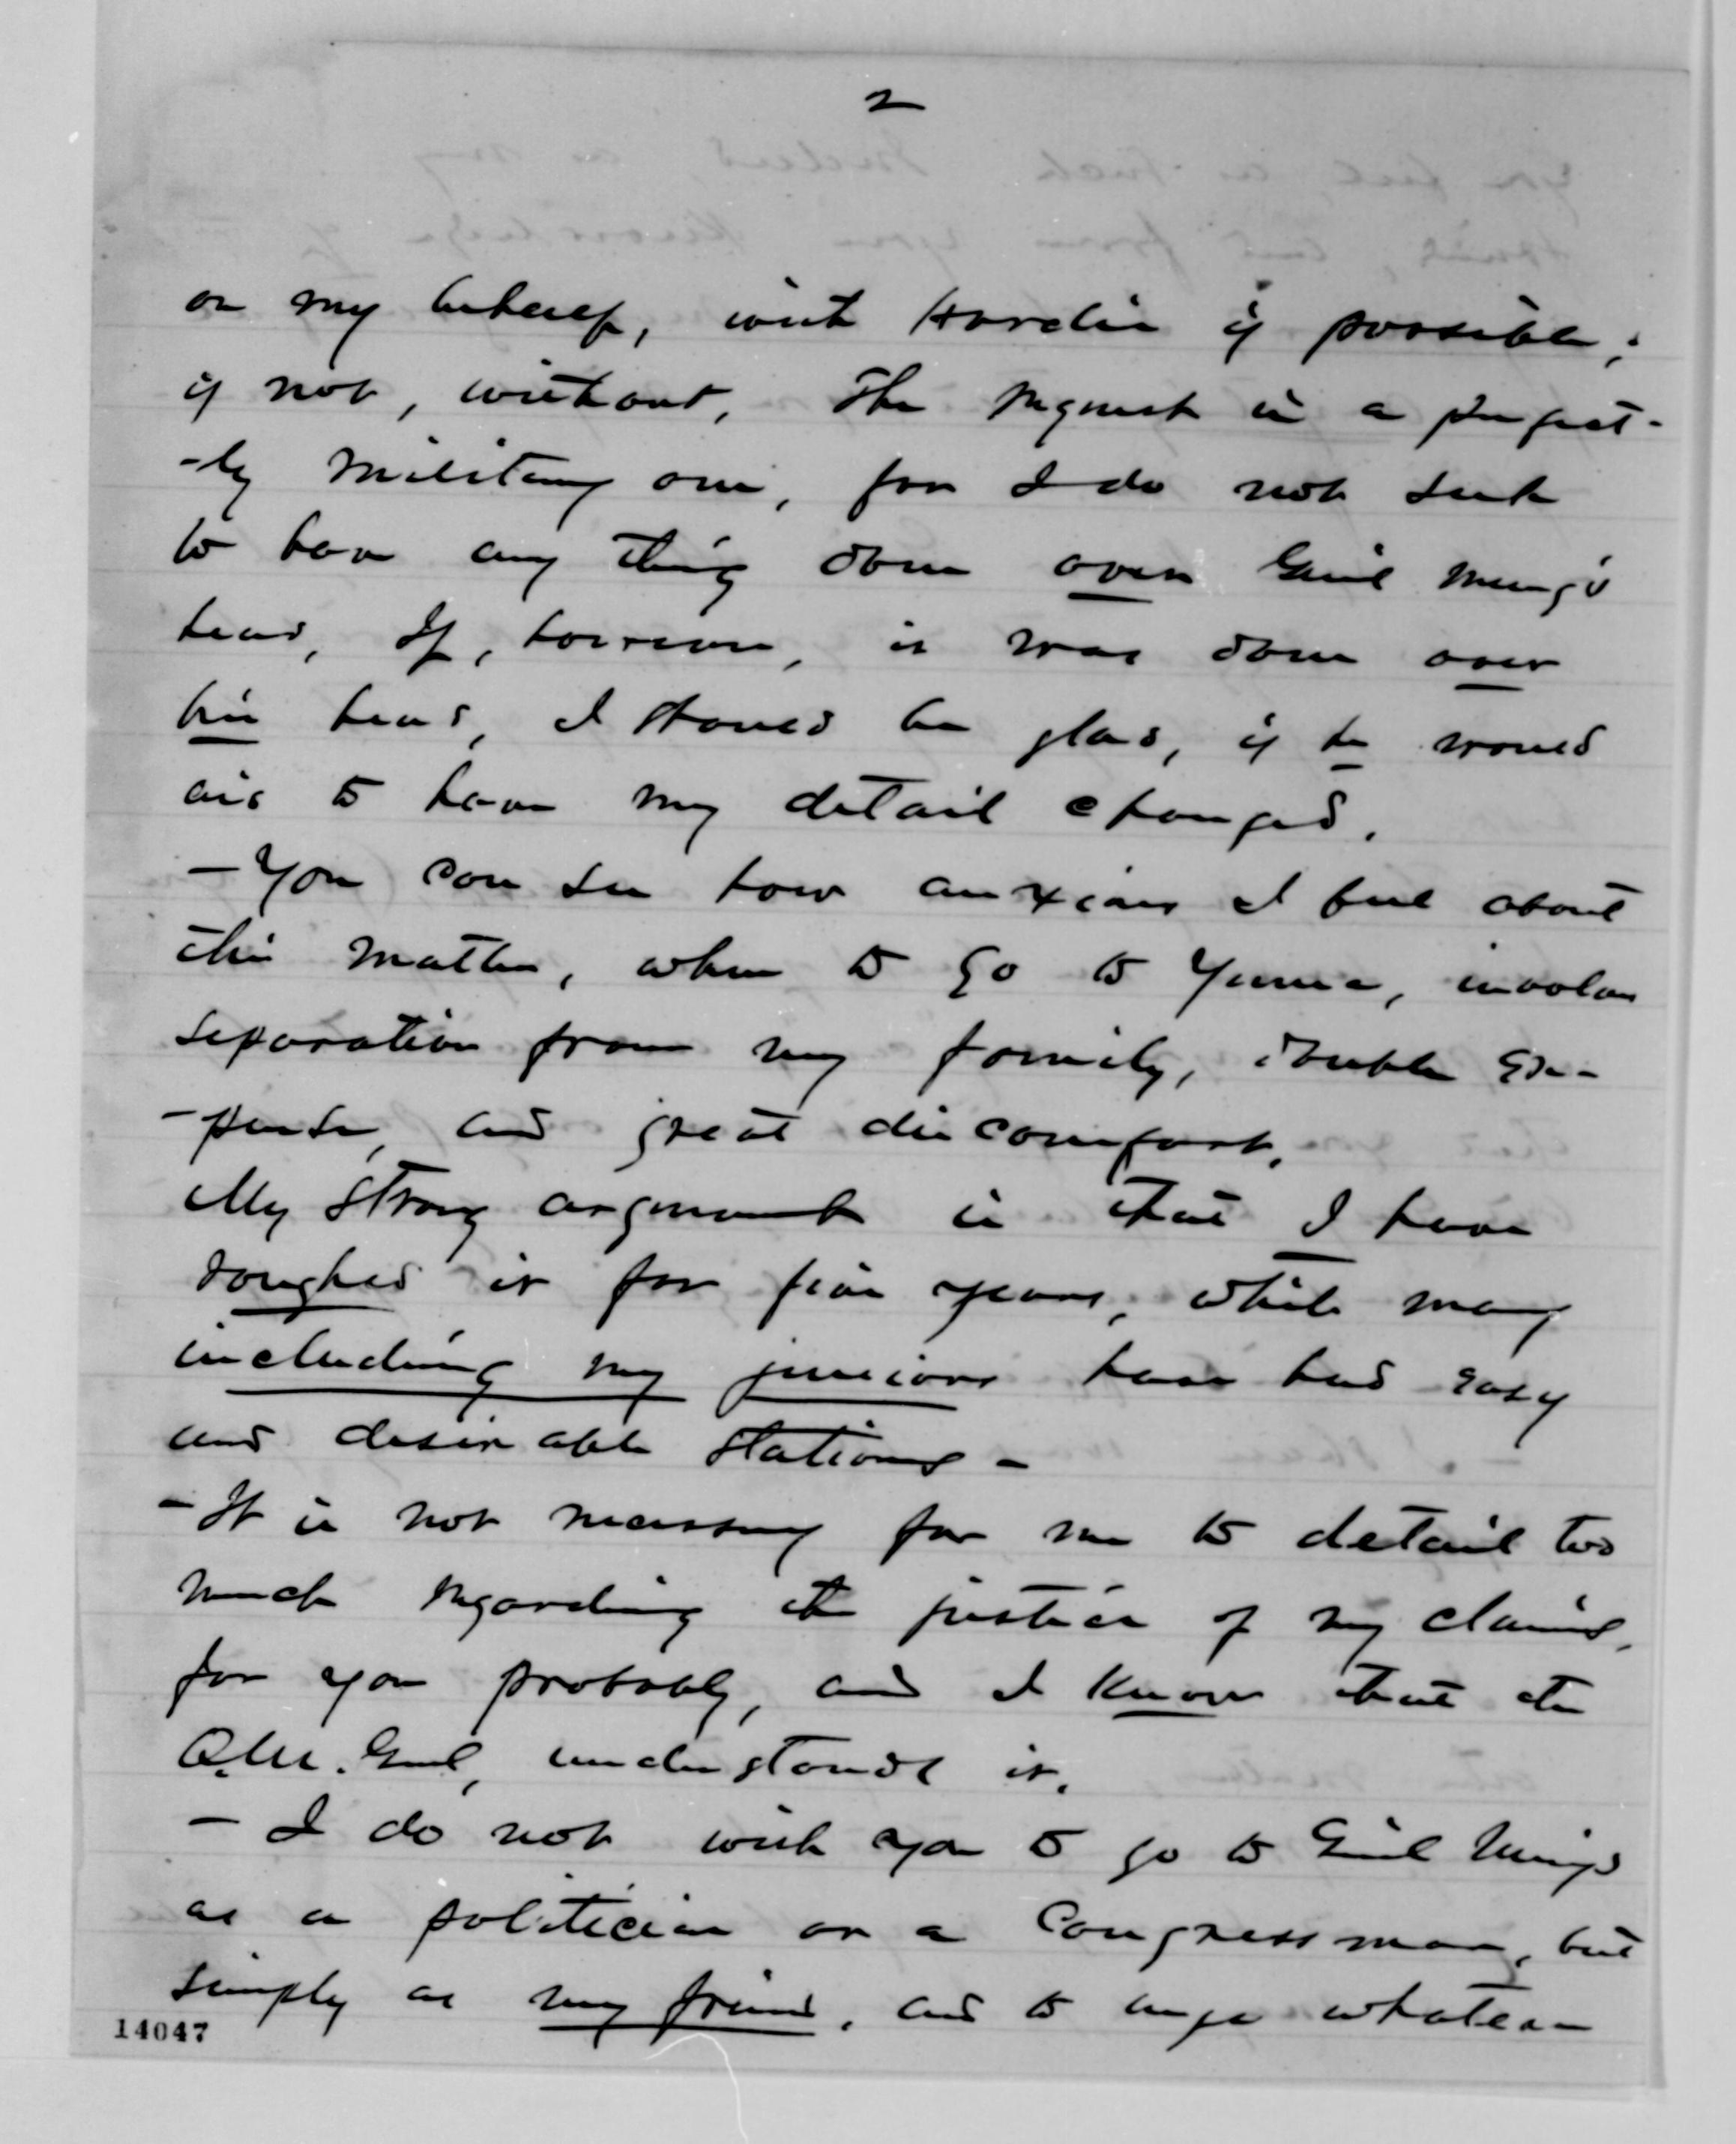 2
on my behalf, with Hardin if possible;
if not, without. The request is a perfect-
-ly military one, for I do not seek
to have any thing done over Genl Meigs'
head, If, however, it was done over
his head, I should be glad, if he would
aid to have my detail changed.
- You can see how anxious I feel about
this matter, when to go to Yuma, involves
separation from my family, double ex-
-pense, and great discomfort.
My strong argument is that I have
roughed it for five years, while many
including my juniors have had easy
and desirable stations -
- It is not necessary for me to detail too
much regarding the justice of my claims,
for you probably, and I know that the
Q.M. Genl, understands it.
- I do not wish you to go to Genl Meigs
as a politician or a Congressman, but
simply as my friend, and to urge whatever
14047